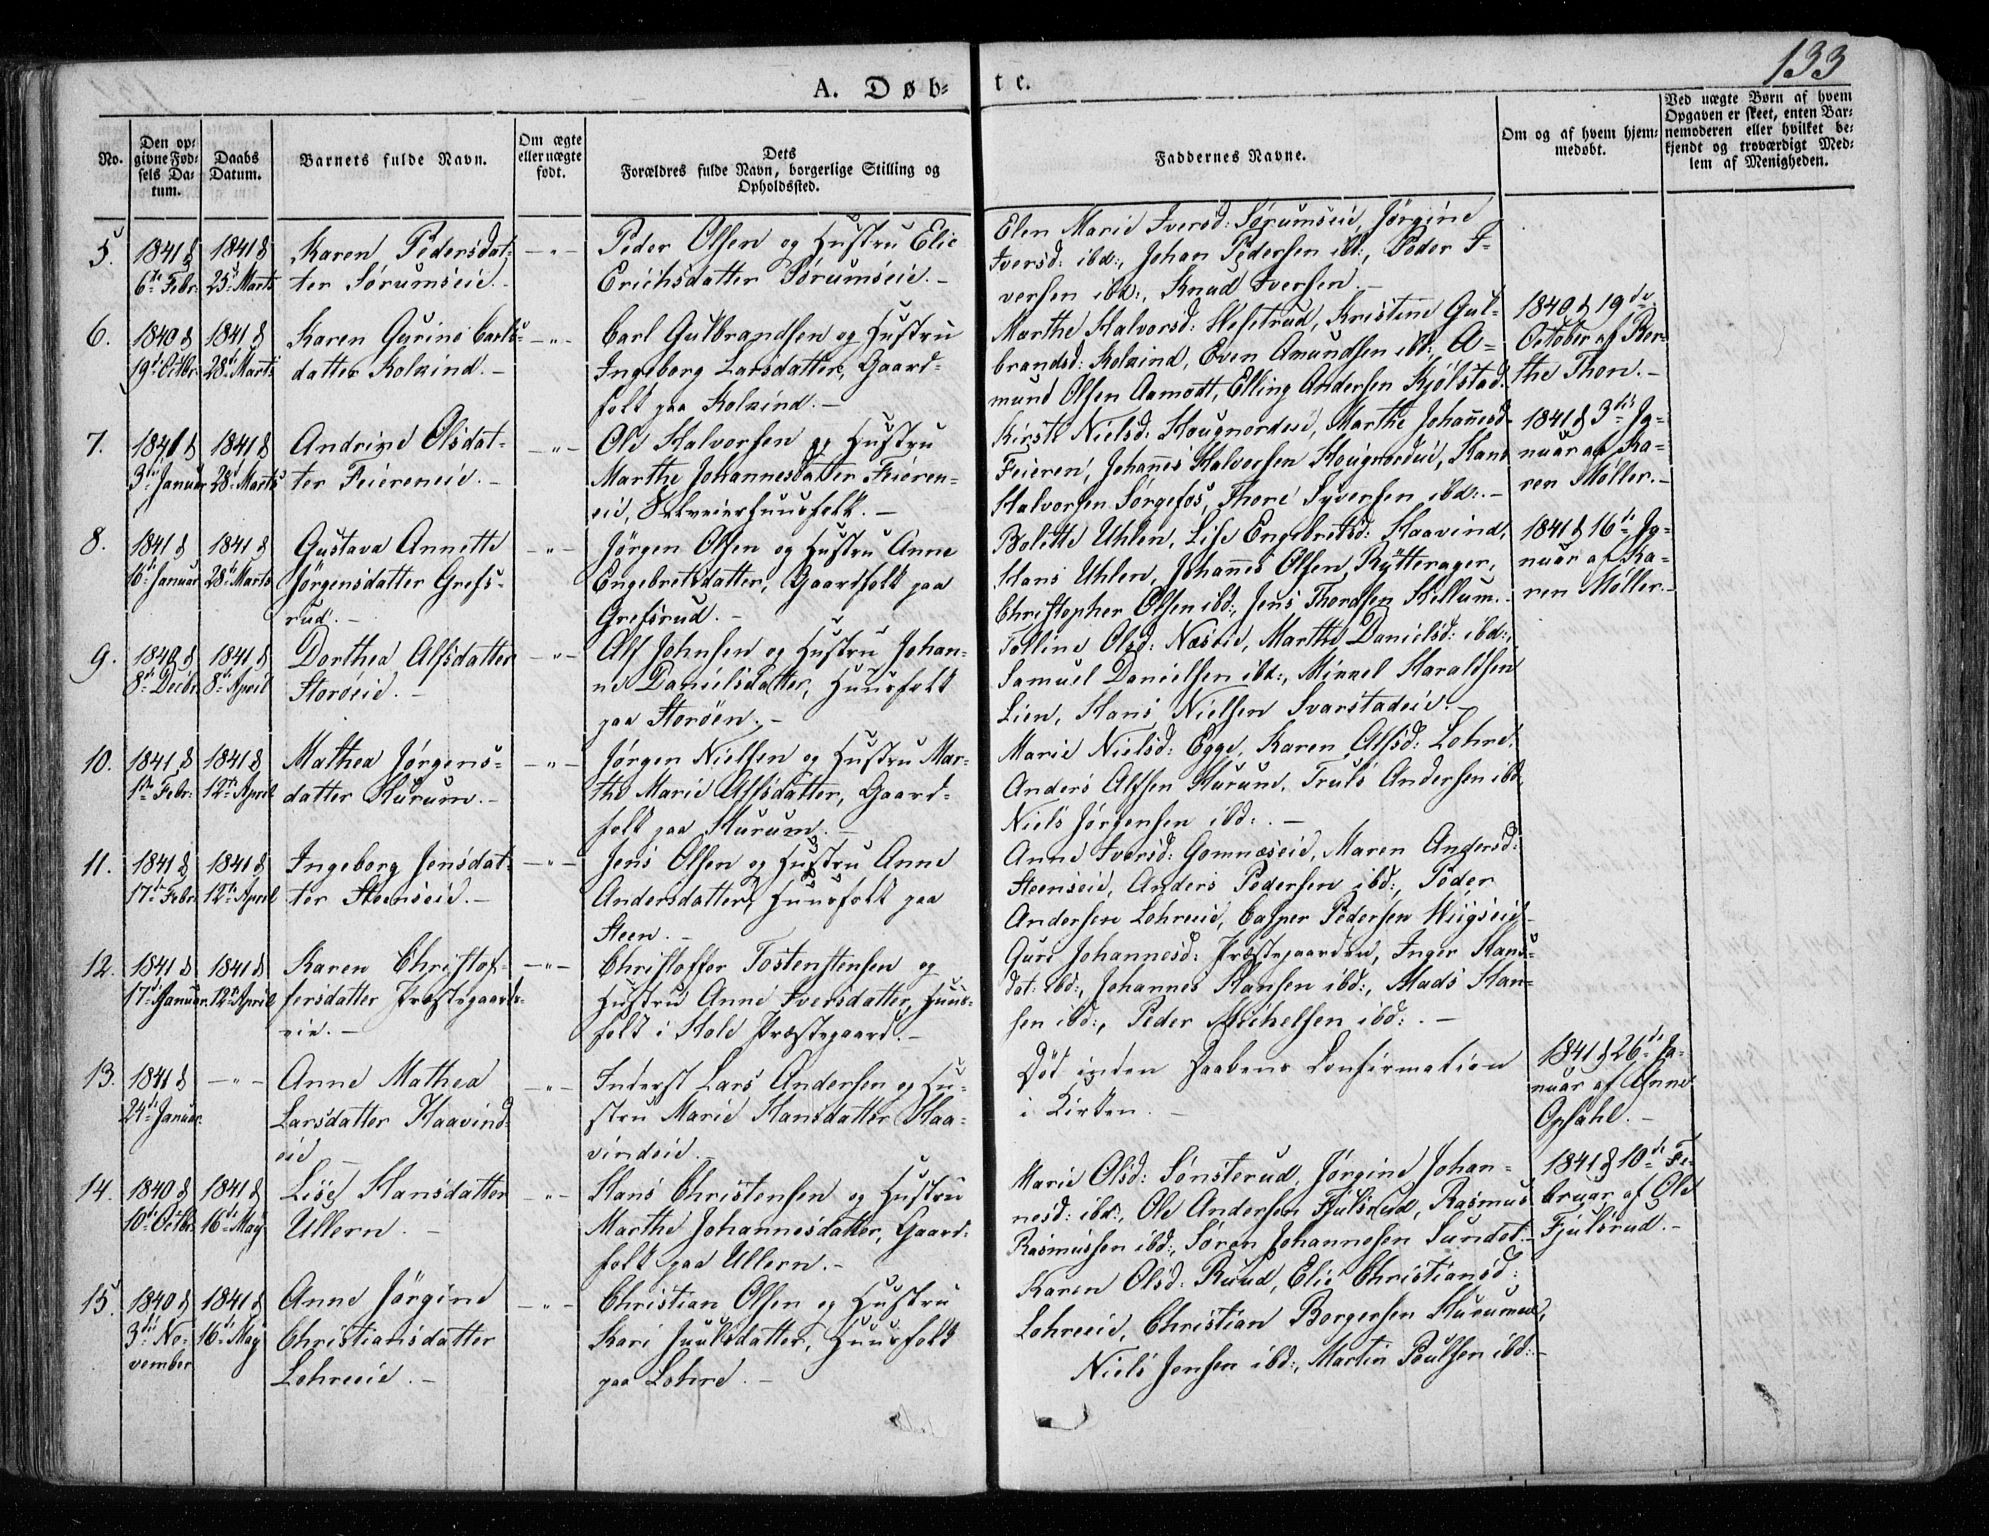 133
A. Døb= te.
No.
Den op=
givne Fød=
sels Da=
tum.
Daabs
Datum.
Barnets fulde Navn.
Om ægte
eller uægte
født.
Dets
Forældres fulde Navn, borgerlige Stilling og
Opholdssted.
Faddernes Navne.
Om og af hvem hjem=
medøbt.
Ved uægte Børn af hvem
Opgaven er skeet, enten Bar=
nemoderen eller hvilket be=
kjendt og troværdigt Med=
lem af Menigheden.
5.
1841 d
6te Febr.
1841 d
25de Marts
Karen Pedersdat=
ter Sørumseie.-
-"-
Peder Olsen og Hustru Elie
Erichsdatter Sørumseie.-
Elen Marie Iversd: Sørumseie, Jørgine
Iversd: ibd:, Johan Pedersen ibd:, Peder I=
versen ibd:, Knud Iversen.-
6.
1840 d
19de Octbr.
1841 d
28de Marts
Karen Gurine Carls=
datter Kolvind.-
-"-
Carl Gulbrandsen og Hustru
Ingeborg Larsdatter, Gaard=
folk paa Kolvind.-
Marthe Halvorsd: Hesetrud, Kristine Gul=
brandsd: Kolvind, Even Amundsen ibd:, A=
mund Olsen Aamodt, Elling Andersen Kjølstad.
1840 d 19de
October af Ber=
the Thon.-
7.
1841 d
3die Januar
1841 d
28de Marts
Andrine Olsdat=
ter Feiereneie.-
-"-
Ole Halvorsen og Hustru
Marthe Johannesdatter Feieren=
eie, Selveierhuusfolk.-
Kirsti Nielsd: Hougnordeie, Marthe Johannesd:
Feieren, Johannes Halvorsen Hougnordeie, Hans
Halvorsen Sørgefos, Thore Syversen ibd:.-
1841 d 3die Ja=
nuar af Ka=
ren Møller.-
8.
1841 d
16de Januar
1841 d
28de Marts
Gustava Annette
Jørgensdatter Grefs=
rud.-
-"-
Jørgen Olsen og Hustru Anne
Engebretsdatter, Gaardfolk paa
Grefsrud.-
Bolette Uhlen, Lise Engebretsd: Haavind,
Hans Uhlen, Johannes Olsen Rytterager,
Christopher Olsen ibd:, Jens Thordsen Hellum.-
1841 d 16de Ja=
nuar af Ka=
ren Møller.-
9.
1840 d
8de Decbr.
1841 d
8de April
Dorthea Alfsdatter
Storøeie.-
-"-
Alf Johnsen og Hustru Johan=
ne Danielsdatter, Huusfolk
paa Storøen.-
Tolline Olsd: Næseie, Marthe Danielsd: ibd:,
Samuel Danielsen ibd:, Mikkel Haraldsen
Lien, Hans Nielsen Svarstadeie.-
10.
1841 d
1ste Febr.
1841 d
12te April
Mathea Jørgens=
datter Hurum.-
-"-
Jørgen Nielsen og Hustru Mar=
the Marie Alfsdatter, Gaard=
folk paa Hurum.-
Marie Nielsd: Egge, Karen Alfsd: Lohre,
Anders Alfsen Hurum, Truls Andersen ibd,
Niels Jørgensen ibd:.-
11.
1841 d
17de Febr.
1841 d
12te April
Ingeborg Jensdat=
ter Steenseie.-
-"-
Jens Olsen og Hustru Anne
Andersdatter, Huusfolk paa
Steen.-
Anne Iversd: Gomnæseie, Maren Andersd:
Steenseie, Anders Pedersen ibd:, Peder
Andersen Lohreeie, Casper Pedersen Wiigseie.-
12.
1841 d
17de Januar.
1841 d
12te April
Karen Christof=
fersdatter Præstegaards=
eie.-
-"-
Christoffer Tostenstensen og
Hustru Anne Iversdatter, Huus=
folk i Hole Præstegaard.-
Guri Johannesd: Præstegaarden, Inger Hans=
dat: ibd:, Johannes Hansen ibd:, Mads Han=
sen ibd:, Peder Michelsen ibd:.-
13.
1841 d
24de Januar.
-"-
Anne Mathea
Larsdatter Haavind=
eie.-
-"-
Inderst Lars Andersen og Hu=
stru Marie Hansdatter Haa=
vindeie.-
Død inden Daabens Confirmation
i Kirken.-
1841 d 26de Ja=
nuar af Anne
Opsahl.-
14.
1840 d
10de Octbr.
1841 d
16de May
Lise Hansdatter
Ullern.-
-"-
Hans Christensen og Hustru
Marthe Johannesdatter, Gaard=
folk paa Ullern.-
Marie Olsd: Sønsterud, Jørgine Johan=
nesd: ibd:, Ole Andersen Fjulsrud, Rasmus
Rasmussen ibd:, Søren Johannesen Sundet.-
1841 d 10de Fe=
bruar af Ole
Fjulsrud.-
15.
1840 d
3die No=
vember
1841 d
16de May
Anne Jørgine
Christiansdatter
Lohreeie.-
-"-
Christian Olsen og Hustru
Kari Juulsdatter, Huusfolk
paa Lohre.-
Karen Olsd: Ruud, Elie Christiansd:
Lohreeie, Christian Borgersen Hurumeie,
Niels Jensen ibd:, Martin Poulsen ibd:-